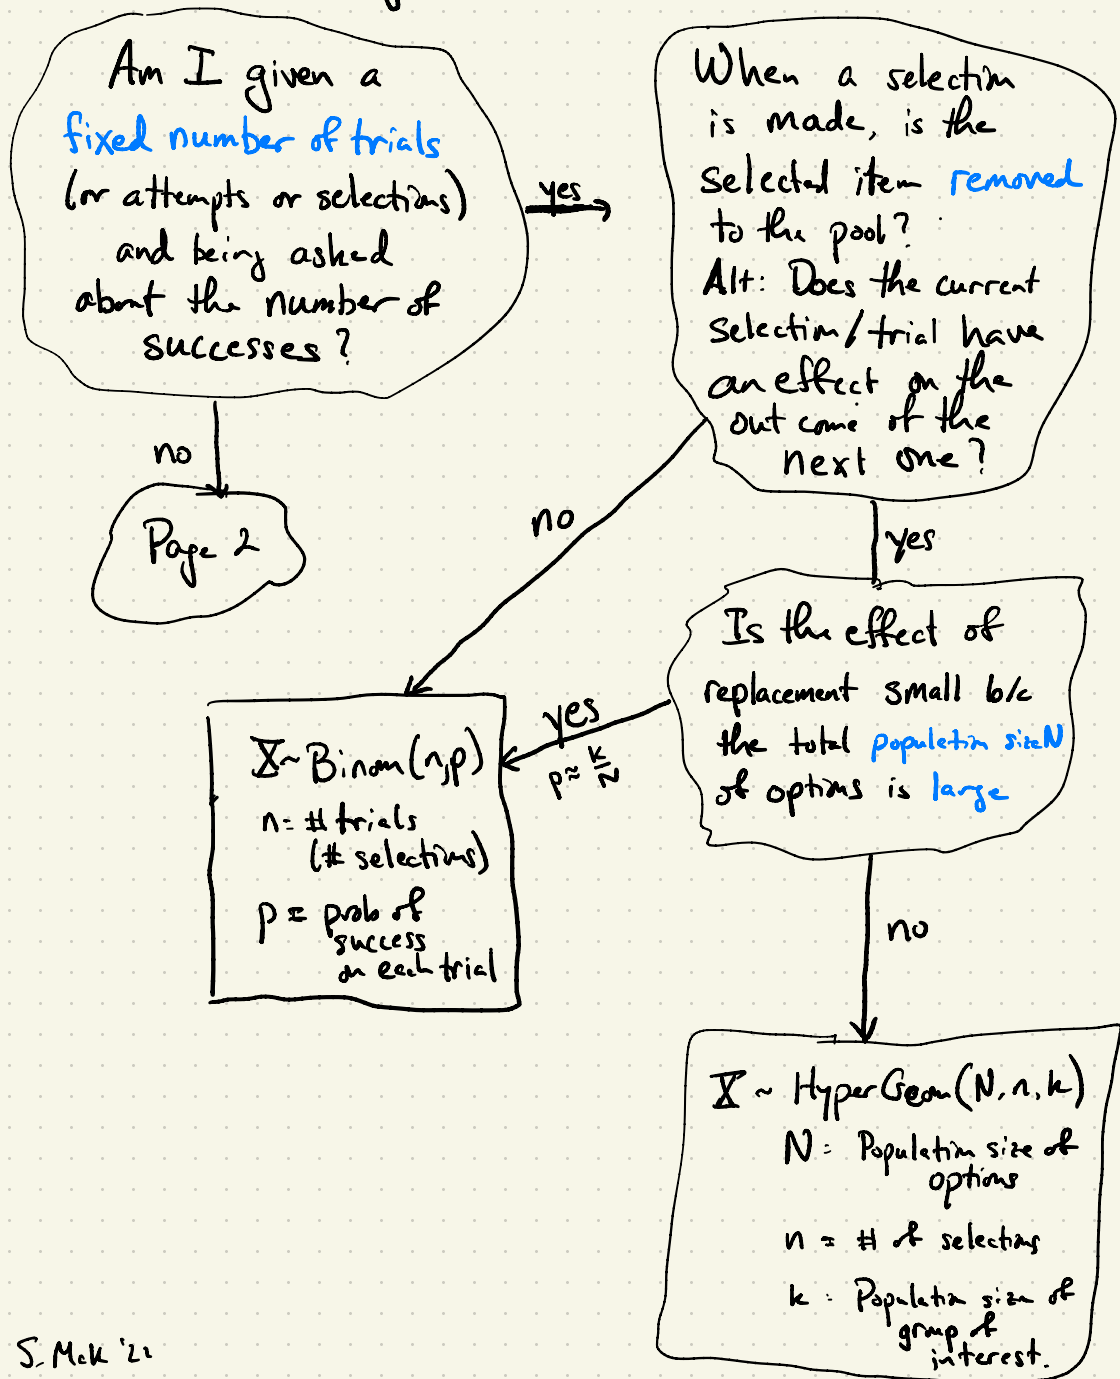 Am I given a
fixed number of trials
(or attempts or selections)
and being asked
about the number of
successes?
yes
When a selection
is made, is the
selected item removed
to the pool?
Alt: Does the current
selection/trial have
an effect on the
out come of the
next one?
no
Page 2
no
yes
Is the effect of
replacement small b/c
the total population size N
of options is large
yes
p ≈ k/N
X ~ Binom(n,p)
n = # trials
(# selections)
p = prob of
success
on each trial
no
X ~ HyperGeom(N, n, k)
N = Population size of
options
n = # of selections
k = Population size of
group of
interest.
S. McK '22